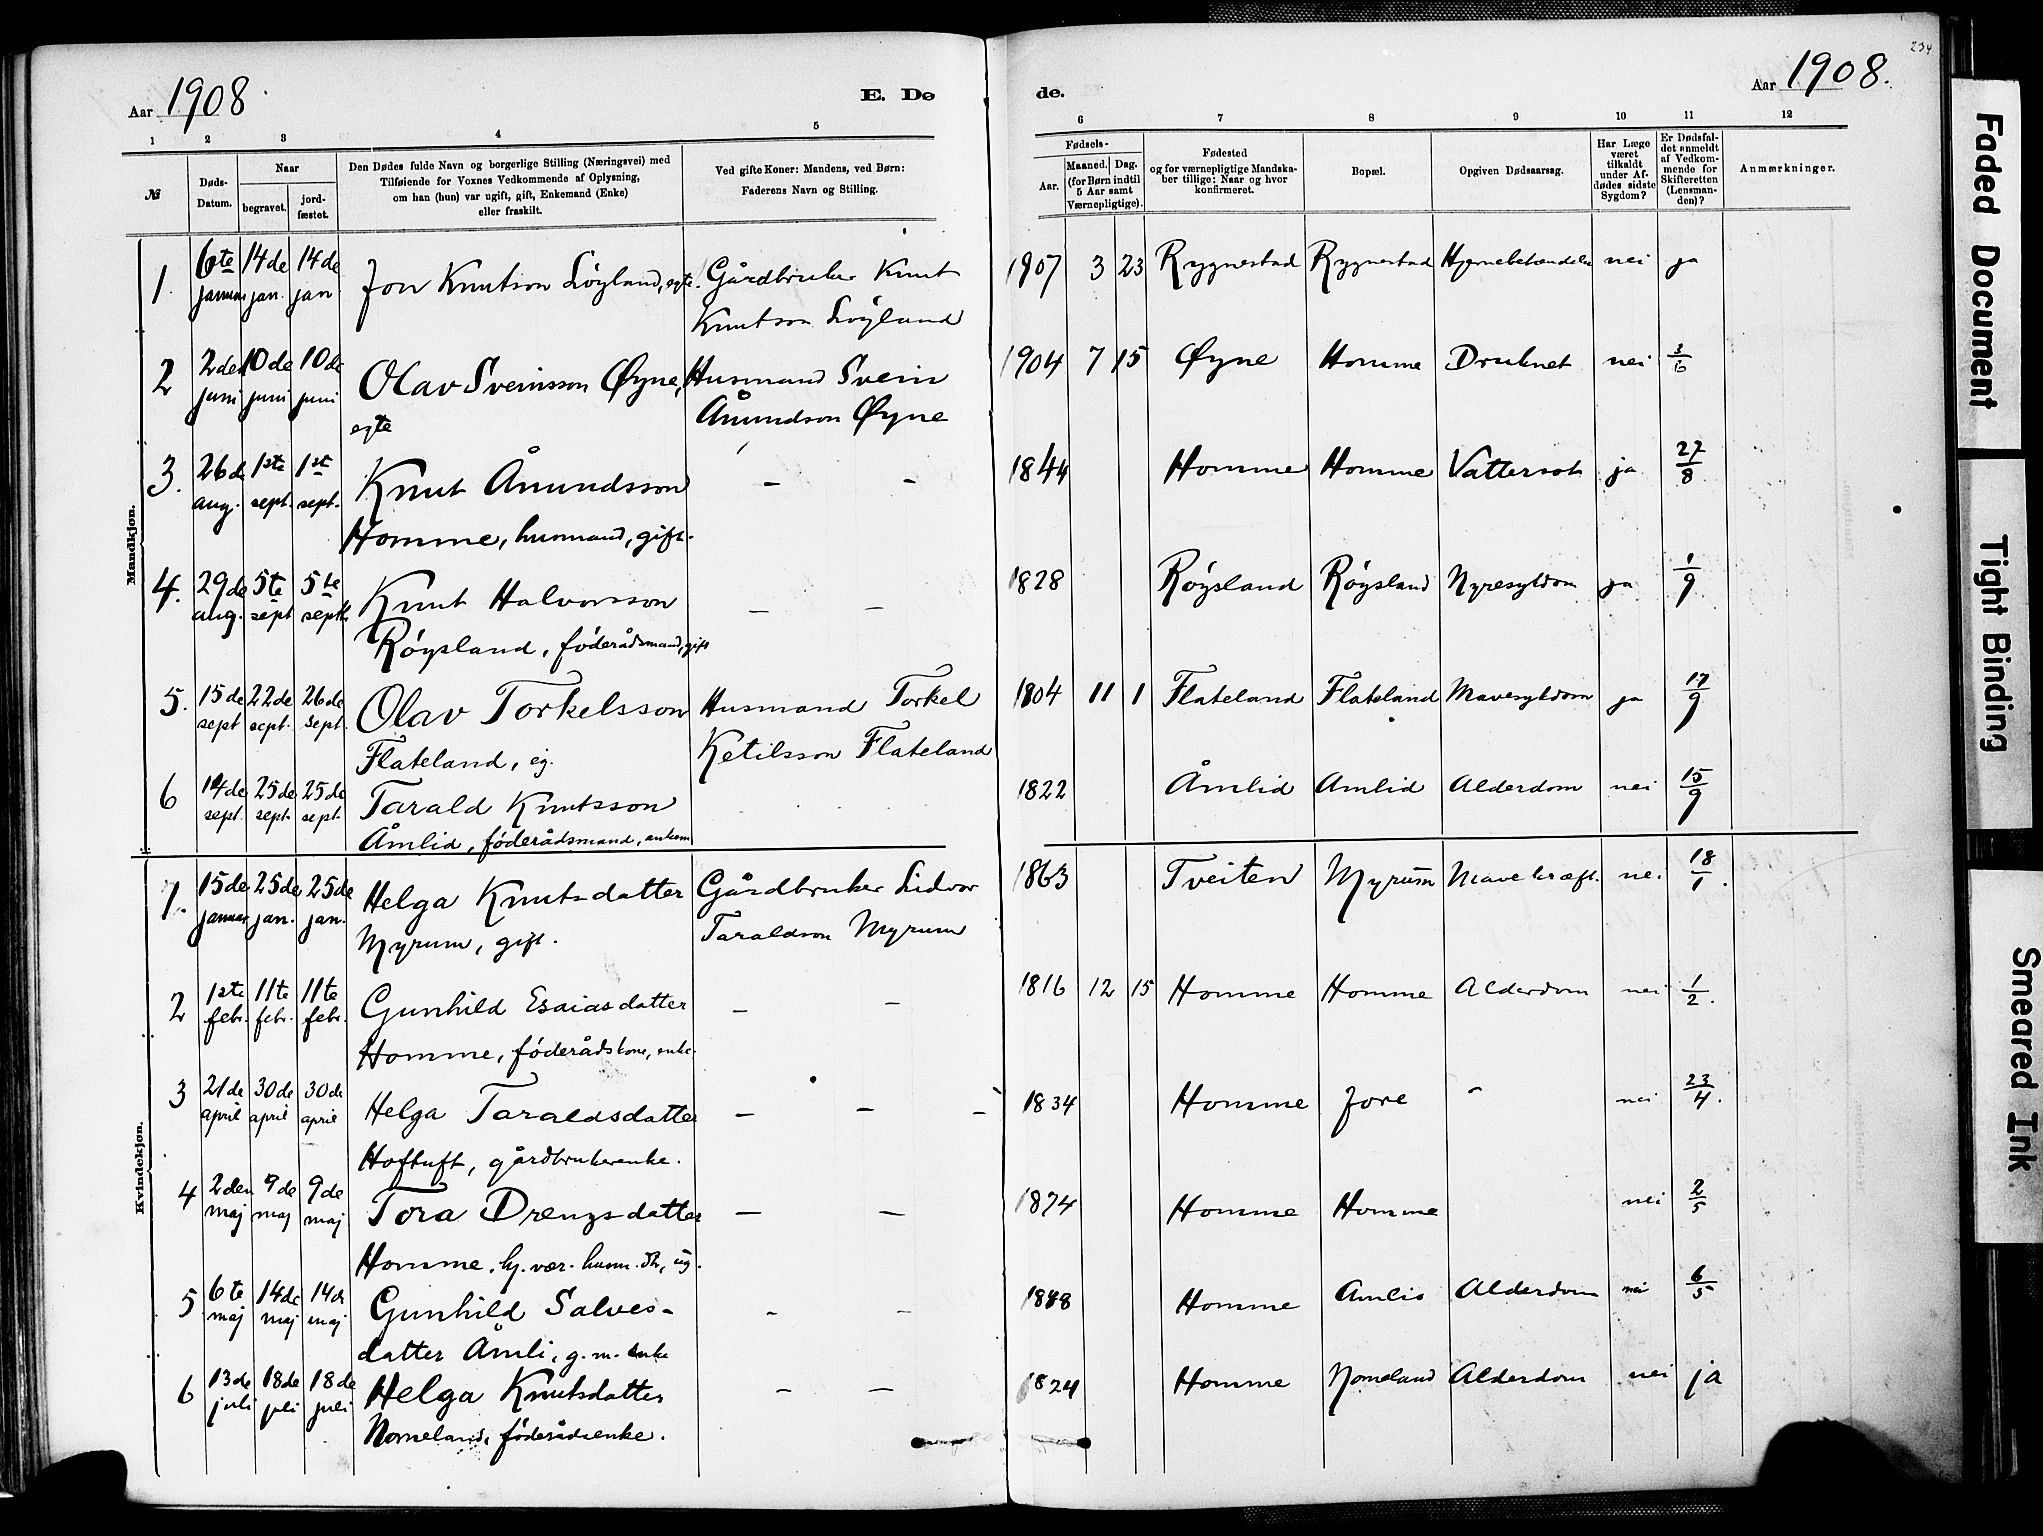 234
Aar 1908
E. Dø
de.
Aar 1908.
1 2 3 4 5
6 7 8 9 10 11 12
№
Døds-Datum.
Naar
begravet.
jord-fæstet.
Den Dødes fulde Navn og borgerlige Stilling (Næringsvei) med
Tilføiende for Voxnes Vedkommende af Oplysning,
om han (hun) var ugift, gift, Enkemand (Enke)
eller fraskilt.
Ved gifte Koner: Mandens, ved Børn:
Faderens Navn og Stilling.
Fødsels-
Aar.
Maaned. Dag.
(for Børn indtil
5 Aar samt
Værnepligtige).
Fødested
og for værnepligtige Mandska-
ber tillige: Naar og hvor
konfirmeret.
Bopæl.
Opgiven Dødsaarsag.
Har Læge
været
tilkaldt
under Af-
dødes sidste
Sygdom?
Er Dødsfal-
det anmeldt
af Vedkom-
mende for
Skifteretten
(Lensman-
den)?
Anmærkninger.
Mandkjøn.
1 6te januar 14de jan. 14de jan Jon Knutson Løyland, egte. Gårdbruker Knut Knutson Løyland 1907 3 23 Rygnestad Rygnestad Hjernebetændelse nei ja
2 2den juni 10de juni 10de juni Olav Sveinsson Øyne, egte Husmand Svein Ånundson Øyne 1904 7 15 Øyne Homme Druknet nei 3/6
3. 26de aug. 1ste sept. 1st sept. Knut Ånundsson Homme, husmand, gift. – – 1844 Homme Homme Vattersot ja 27/8
4. 29de aug. 5te sept 5te sept. Knut Halvorsson Røysland, føderådsmand, gift – – 1828 Røysland Røysland Nyresykdom ja 1/9
5. 15de sept 22de sept. 26de sept. Olav Torkelsson Flateland, eg. Husmand Torkel Ketilsson Flateland 1804 11 1 Flateland Flateland Mavesykdom ja 17/9
6 14de sept. 25de sept. 25de sept. Tarald Knutsson Åmlid, føderådsmand, enkem 1822 Åmlid Amlid Alderdom nei 15/9
Kvindekjøn.
1. 15de januar 25de jan. 25de jan. Helga Knutsdatter Myrum, gift. Gårdbruker Lidvor Taraldson Myrum 1863 Tveiten Myrum Mavekræft. nei 18/1.
2 1ste febr. 11te febr. 11te febr. Gunhild Esaiasdatter Homme, føderådskone, enke. – – 1816 12 15 Homme Homme Alderdom nei 1/2.
3 21de april 30de april 30de april Helga Taraldsdatter Hoftuft, gårdbrukerenke. – – – 1834 Homme Jore – nei 23/4.
4 2den maj 9de maj 9de maj Tora Drengsdatter Homme, hj. vær. husm. dtr, ug. – – 1874 Homme Homme nei 2/5
5 6te maj 14de maj 14de maj Gunhild Salves- datter Åmli, g. m. enke – – 1818 Homme Amlid Alderdom nei 6/5
6 13de juli 18de juli 18de juli Helga Knutsdatter Nomeland, føderådsenke. – – 1824 Homme Nomeland Alderdom nei ja
Faded Document
Tight Binding
Smeared Ink